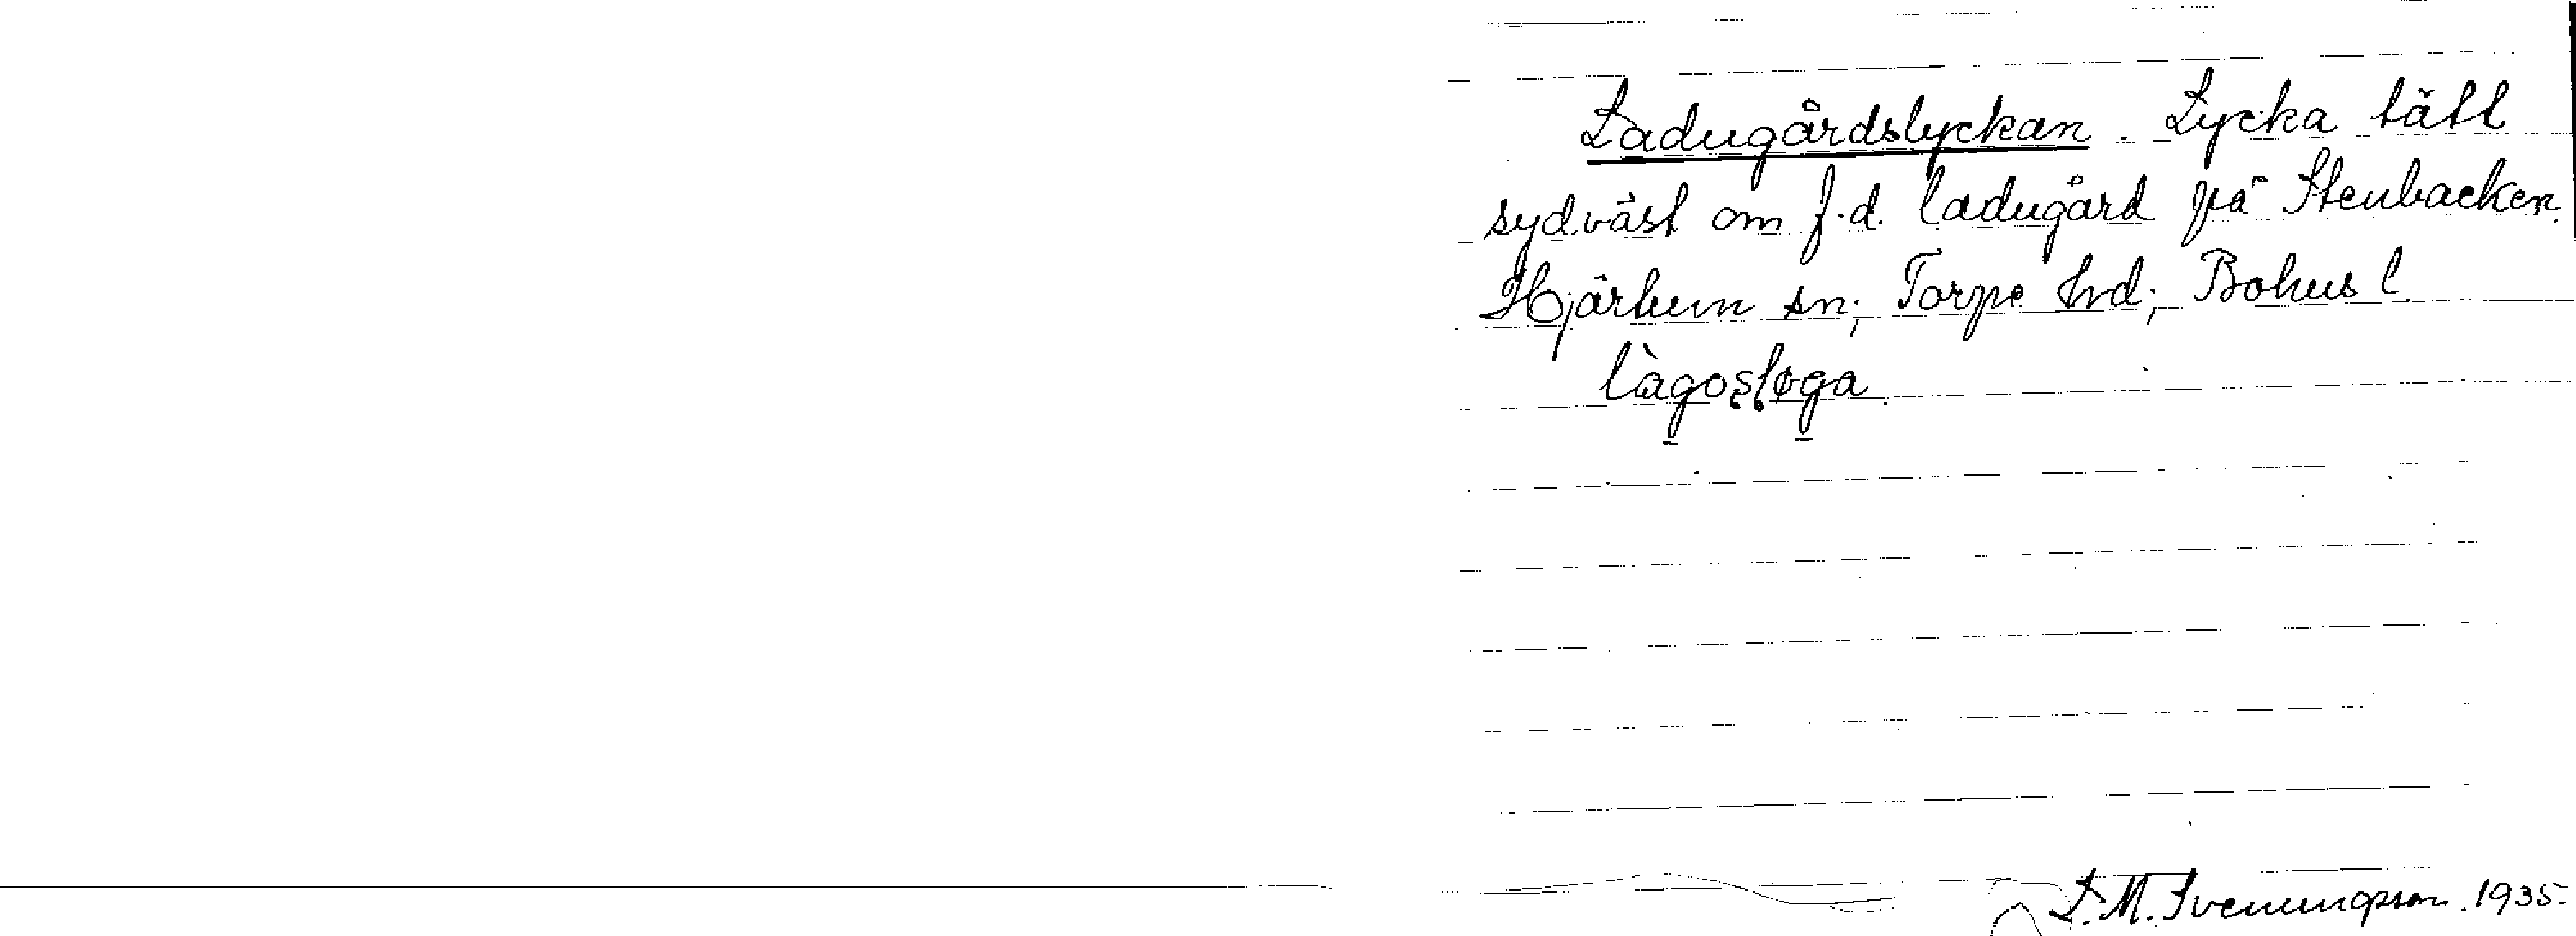 Ladugårdslyckan. Lycka tätt
sydväst om f.d. ladugård på Stenbacken.
Hjärtum sn; Torpe hrd; Bohus l.
làgosløga
L. M. Svenungsson. 1935.